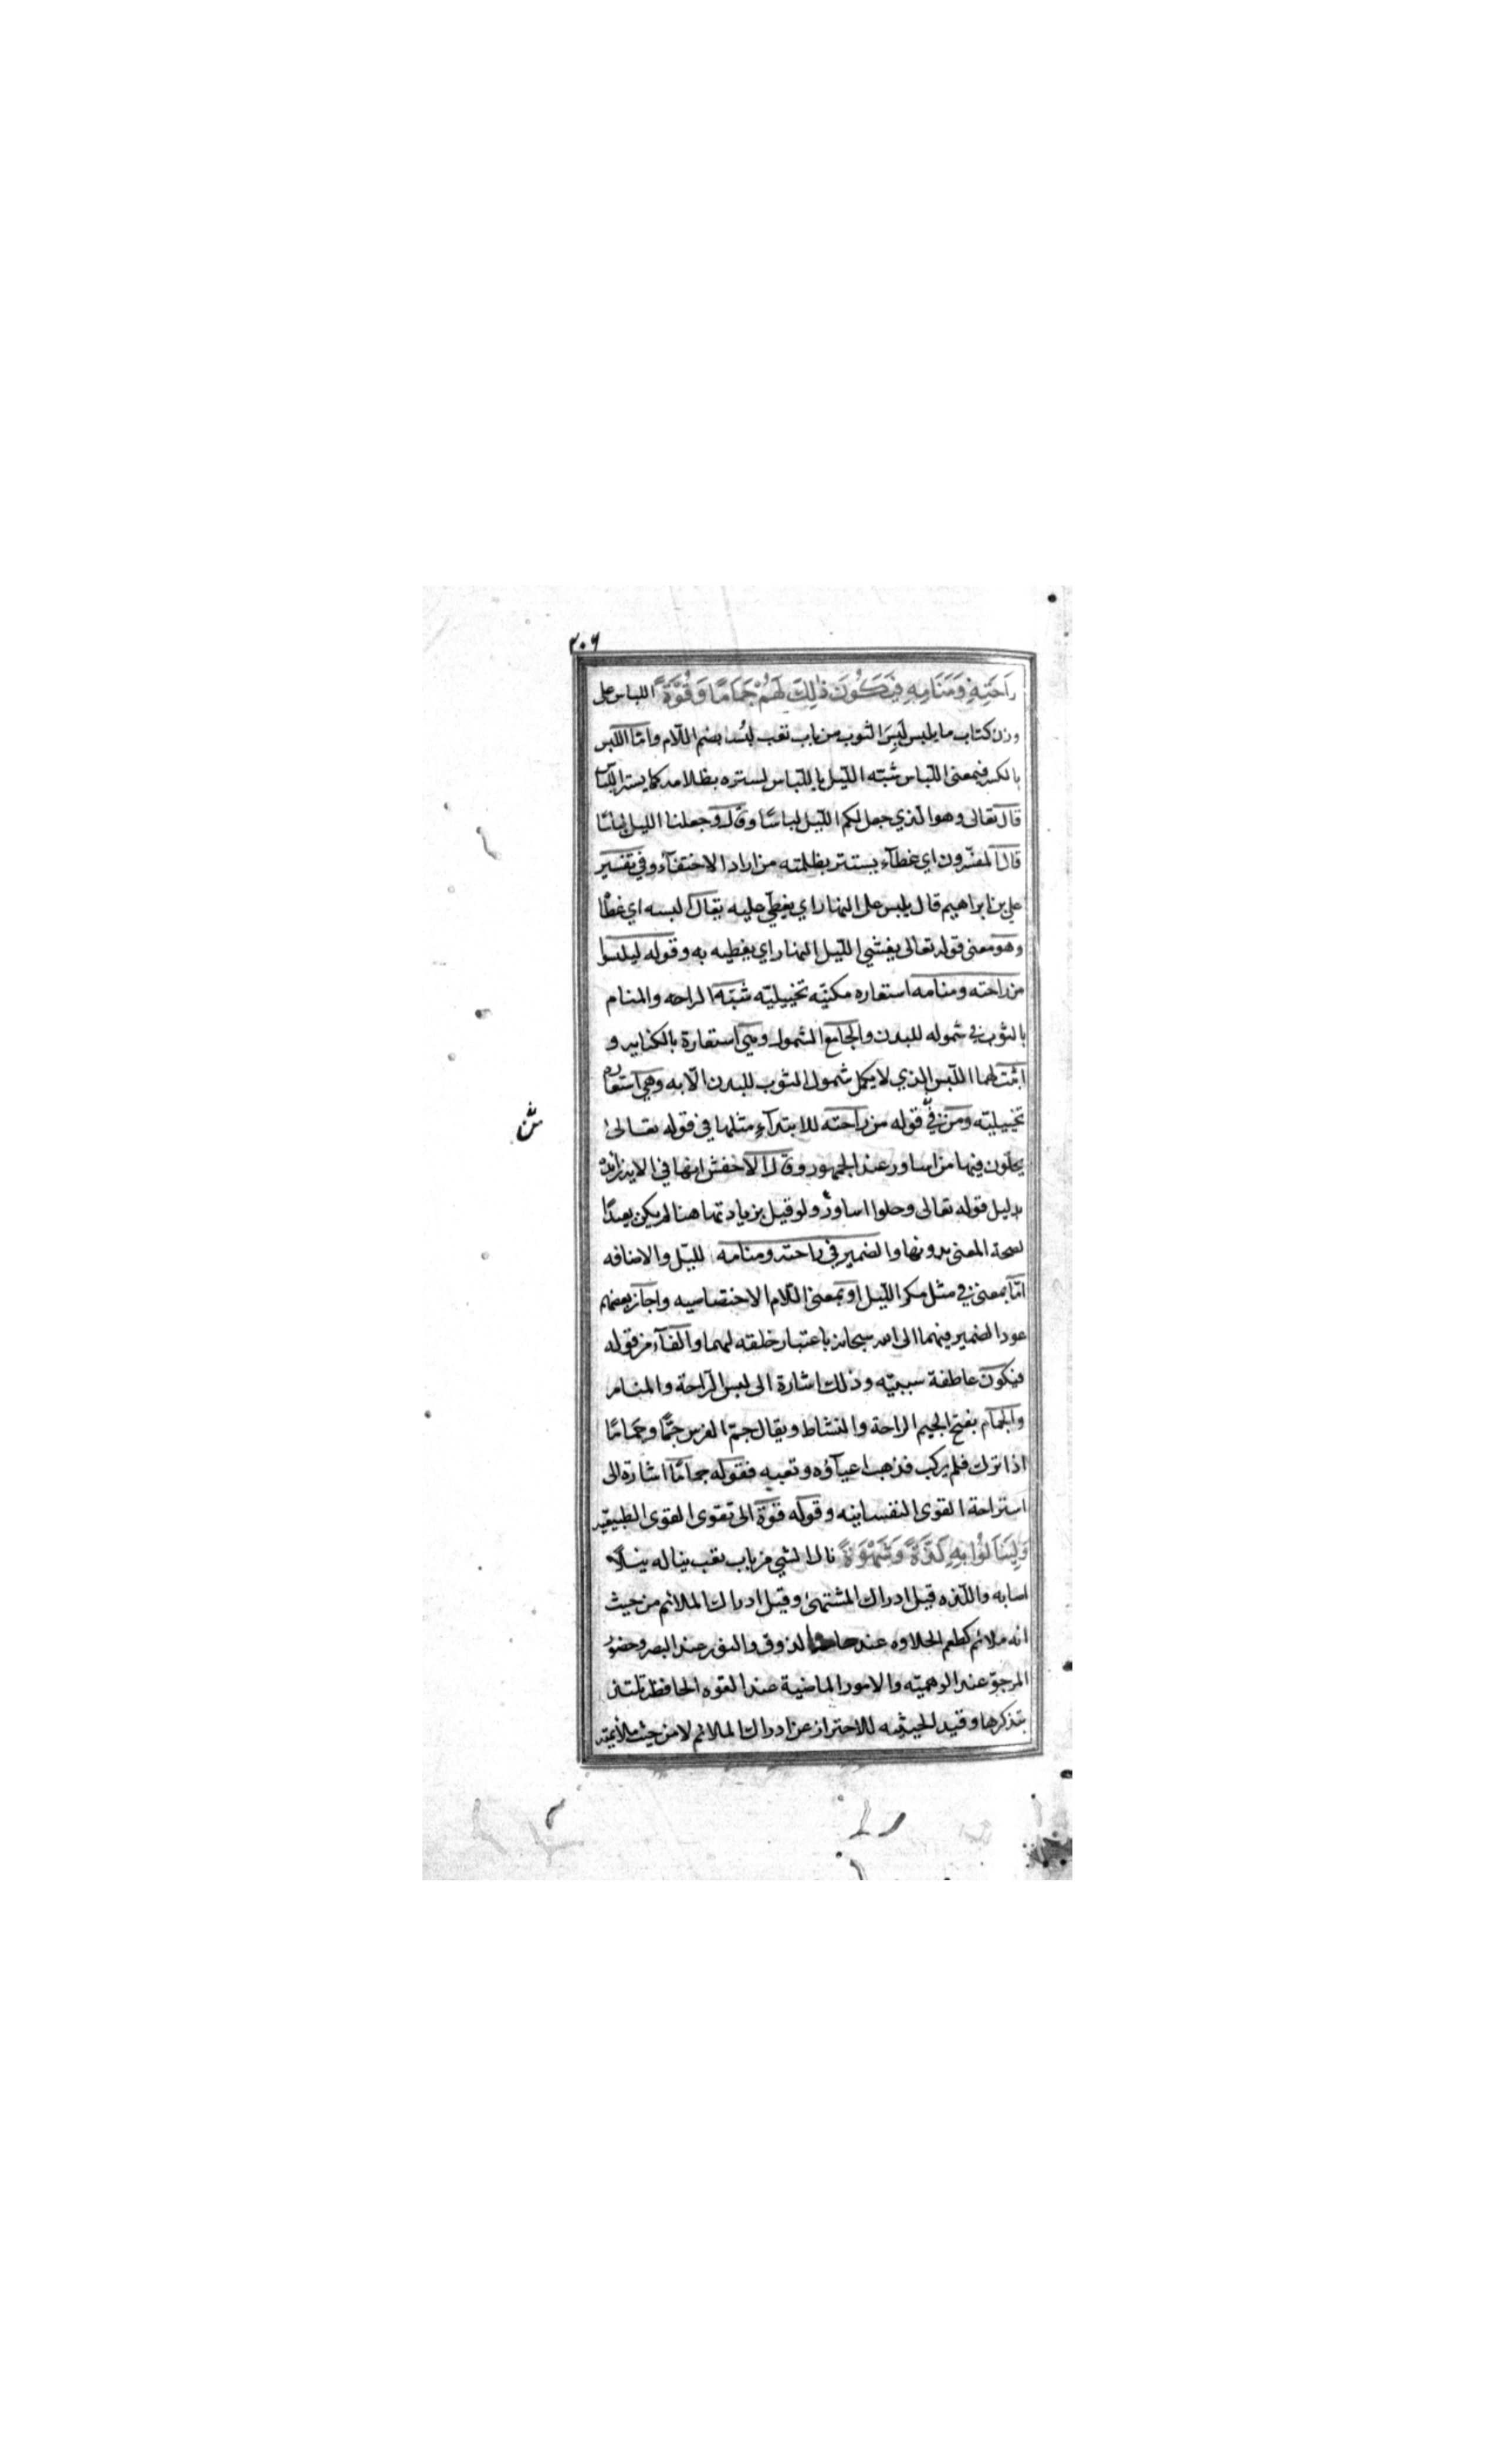 ٢٠٦
رَاحَتِهِ وَمَنَامِهِ فَيَكُونَ ذٰلِكَ لَهُمْ جَمَامًا وَقُوَّةً اللباس على
وزن كتاب ما يلبس لَبِسَ الثوب من باب تعب لبُسا بضم اللّام وامّا اللبس
بالكسر فبمعنى اللّباس شبّه اللّيل باللّباس لستره بظلامه كما يستر اللّباس
قال تعالى وهو الّذي جعل لكم اللّيل لباسًا وقال وجعلنا الليل لباسًا
قال المفسّرون اي غطآء يستتر بظلمته من اراد الاختفآء وفي تفسير
علي بن ابراهيم قال يلبس على النهار اي يغطّي عليه يقال لبسه اي غطّاه
وهو معنى قوله تعالى يغشي اللّيل النهار اي يغطيه به وقوله ليلبسوا
من راحته ومنامه استعاره مكنيّه تخييليّه شبّه الراحه والمنام
بالثوب في شموله للبدن والجامع الشمول وهي استعارة بالكنايه و
اثبت لهما اللّبس الذي لا يكمل شمول الثوب للبدن الّا به وهي استعاره
تخييليّه ومن في قوله من راحته للابتدآء مثلها في قوله تعالىٰ
يحلّون فيها من اساور عند الجمهور وقال الاخفش انها في الايه زائده
بدليل قوله تعالى وحلوا اساور ولو قيل بزيادتها هنا لم يكن بعيدًا
لصحة المعنى بدونها والضمير في راحته ومنامه لليّل والاضافه
امّا بمعنى في مثل مكر اللّيل او بمعنى اللّام الاختصاصيه واجاز بعضهم
عود الضمير فيهما الى الله سبحانه باعتبار خلقه لهما والفآء من قوله
فيكون عاطفة سببيّه وذلك اشارة الى لبس الرّاحة والمنام
والجمام بفتح الجيم الراحة والنشاط ويقال جمّ الفرس جمًّا وجمامًا
اذا ترك فلم يركب فذهب اعيآؤه وتعبه فقوله جمامًا اشارة الى
استراحة القوى النفسانيه وقوله قوّة الى تقوى القوى الطبيعيّه
وَلِيَنَالُوْا بِهِ لَذَّةً وَشَهْوَةً نال الشي من باب تعب يناله نيلاً
اصابه واللّذه قيل ادراك المشتهىٰ وقيل ادراك الملائم من حيث
انه ملائم كطعم الحلاوه عند حاسّة الذوق والنور عند البصر وحضور
المرجوّ عند الوهميّه والامور الماضية عند القوه الحافظه تلتذ
بتذكرها وقيد الحيثيّه للاحتراز عن ادراك الملائم لا من حيث ملائمته